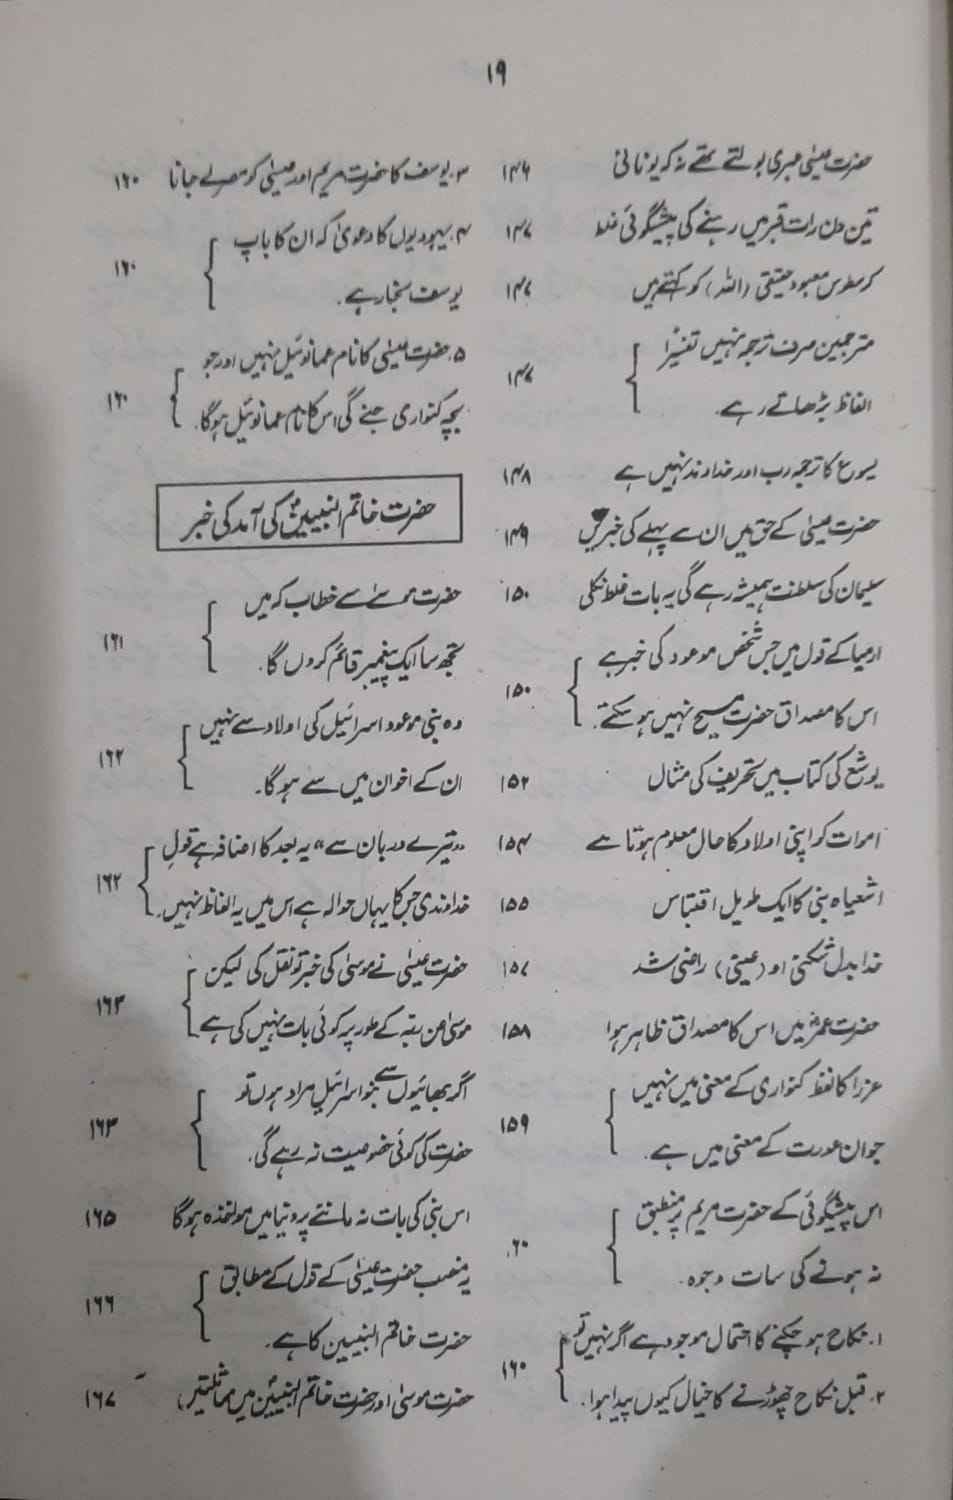 ۱۹
حضرت عیسیٰ عبری بولتے تھے نہ کہ یونانی ۱۴۶
تین دن رات قبر میں رہنے کی پیشگوئی غلط ۱۴۷
کرسطوس معبود حقیقی (اللہ) کو کہتے ہیں ۱۴۷
مترجمین صرف ترجمہ نہیں تفسیراً
الفاظ بڑھاتے رہے۔ ۱۴۷
یسوع کا ترجمہ رب اور خداوند نہیں ہے ۱۴۸
حضرت عیسیٰ کے حق میں ان سے پہلے کی خبریں ۱۴۹
سلیمان کی سلطنت ہمیشہ رہے گی یہ بات غلط نکلی ۱۵۰
ارمیا کے قول میں جس شخص موعود کی خبر ہے
اس کا مصداق حضرت مسیح نہیں ہو سکتے۔ ۱۵۰
یوشع کی کتاب میں تحریف کی مثال ۱۵۲
اموات کو اپنی اولاد کا حال معلوم ہوتا ہے ۱۵۴
اشعیاہ نبی کا ایک طویل اقتباس ۱۵۵
خدا بدل شکنی او (عیسیٰ) راضی شد ۱۵۷
حضرت عمرؓ میں اس کا مصداق ظاہر ہوا ۱۵۸
عزرا کا لفظ کنواری کے معنی میں نہیں
جوان عورت کے معنی میں ہے۔ ۱۵۹
اس پیشگوئی کے حضرت مریم پر منطبق
نہ ہونے کی سات وجوہ۔ ۶۰
۱. نکاح ہو چکنے کا احتمال موجود ہے اگر نہیں تو
۲. قبل نکاح چھوڑنے کا خیال کیوں پیدا ہوا۔ ۱۶۰
۳. یوسف کا حضرت مریم اور عیسیٰ کو مصر لے جانا ۱۶۰
۴. یہودیوں کا دعویٰ کہ ان کا باپ
یوسف نجار ہے۔ ۱۶۰
۵. حضرت عیسیٰ کا نام عمانوئیل نہیں اور جو
بچہ کنواری جنے گی اس کا نام عمانوئیل ہوگا۔ ۱۶۰
حضرت خاتم النبیینؐ کی آمد کی خبر
حضرت موسےٰ سے خطاب کہ میں
تجھ سا ایک پیغمبر قائم کروں گا۔ ۱۶۱
وہ نبی موعود اسرائیل کی اولاد سے نہیں
ان کے اخوان میں سے ہوگا۔ ۱۶۲
"تیرے دربان سے" یہ بعد کا اضافہ ہے قول
خداوندی جس کا یہاں حوالہ ہے اس میں یہ الفاظ نہیں۔ ۱۶۲
حضرت عیسیٰ نے موسیٰ کی خبر تو نقل کی لیکن
موسیٰ من بتہ کے طور پر کوئی بات نہیں کی ہے ۱۶۳
اگر بھائیوں سے بنو اسرائیل مراد ہوں تو
حضرت کی کوئی خصوصیت نہ رہے گی۔ ۱۶۳
اس نبی کی بات نہ ماننے پر دنیا میں مواخذہ ہوگا ۱۶۵
یہ منصب حضرت عیسیٰ کے قول کے مطابق
حضرت خاتم النبیین کا ہے۔ ۱۶۶
حضرت موسیٰ اور حضرت خاتم النبیینؐ میں مماثلتیں ۱۶۷